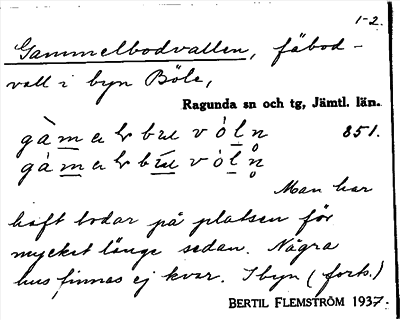 1-2.
Gammelbodvallen, fäbod-
vall i byn Böle,
Ragunda sn och tg, Jämtl. län.
851.
Man har
haft bodar på platsen för
mycket länge sedan. Några
hus finnas ej kvar. I byn (forts.)
BERTIL FLEMSTRÖM 1937.